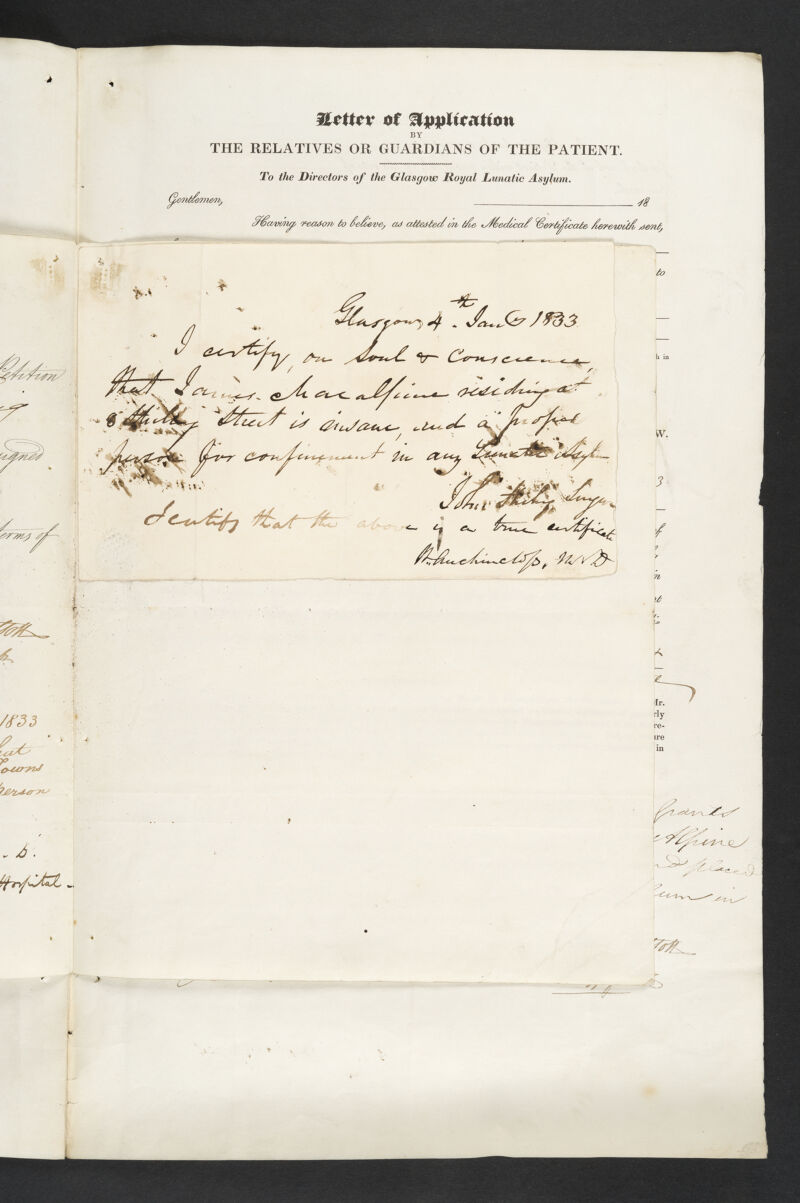 Letter of Application
BY
THE RELATIVES OR GUARDIANS OF THE PATIENT.
To the Directors of the Glasgow Royal Lunatic Asylum.
Gentlemen, 18
Having reason to believe, as attested in the Medical Certificate herewith sent,
to
h in
W.
3
Glasgow 4th Jany 1833
I certify, on Soul & Conscience,
that James Macalpine residing at
Street is insane, and a proper
person for confinement in any Lunatic Asylm
John
I certify that the above is a true certificate
W. Auchincloss, M.D
Petition
igned
terms of
1833
Towns
person
. D.
Hospital
of
in
Mr.
rly
re-
ure
in
grants
cAlpine
nd placed
lum in